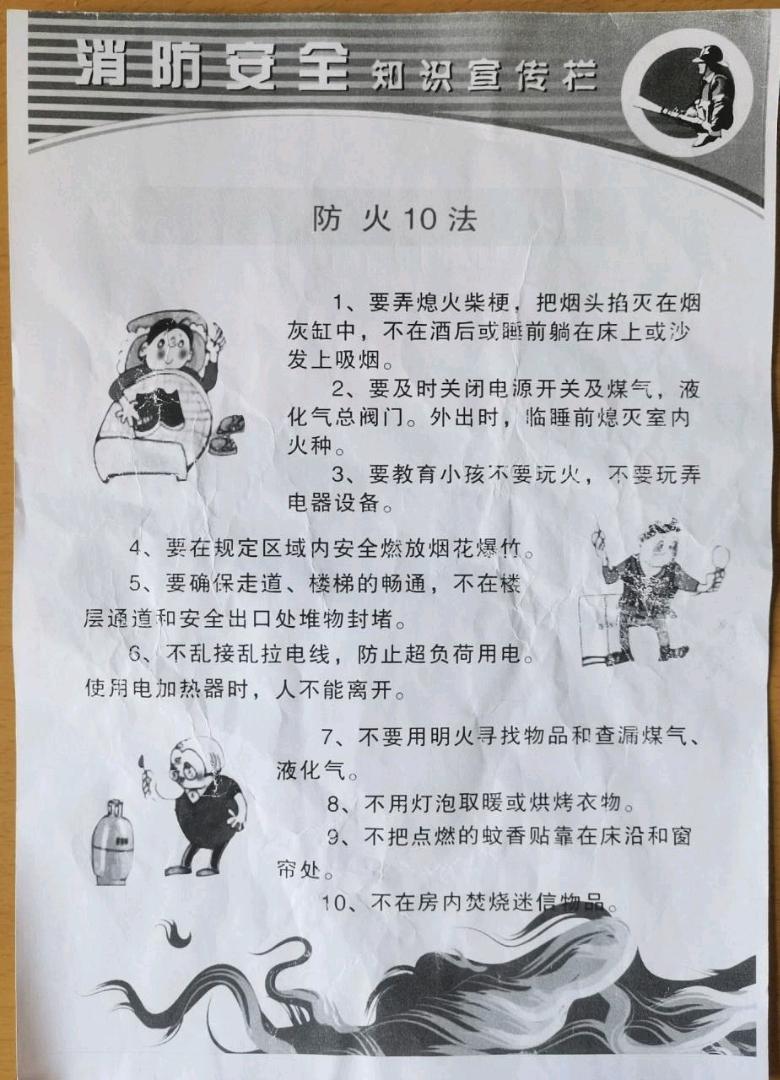 消防安全知识宣传栏
防火10法
1、要弄熄火柴梗，把烟头掐灭在烟
灰缸中，不在酒后或睡前躺在床上或沙
发上吸烟。
2、要及时关闭电源开关及煤气，液
化气总阀门。外出时，临睡前熄灭室内
火种。
3、要教育小孩不要玩火，不要玩弄
电器设备。
4、要在规定区域内安全燃放烟花爆竹。
5、要确保走道、楼梯的畅通，不在楼
层通道和安全出口处堆物封堵。
6、不乱接乱拉电线，防止超负荷用电。
使用电加热器时，人不能离开。
7、不要用明火寻找物品和查漏煤气、
液化气。
8、不用灯泡取暖或烘烤衣物。
9、不把点燃的蚊香贴靠在床沿和窗
帘处。
10、不在房内焚烧迷信物品。